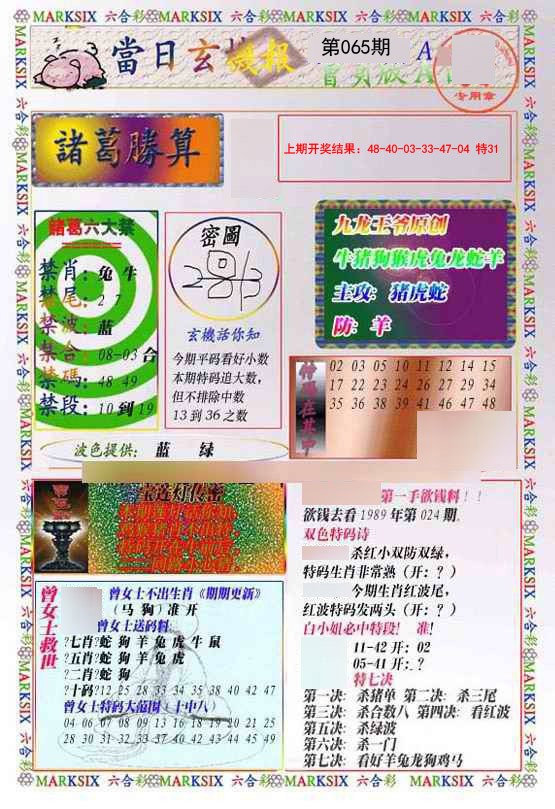 MARKSIX 六合彩 MARKSIX 六合彩 MARKSIX 六合彩 MARKSIX 六合彩 MARKSIX
當日玄機報
第065期
A
专用章
諸葛勝算
上期开奖结果: 48-40-03-33-47-04 特31
諸葛六大禁
禁肖: 兔 牛
禁尾: 2 7
禁波: 蓝
禁合: 08-03 合
禁碼: 48 49
禁段: 10 到 19
密圖
玄機話你知
今期平码看好小数
本期特码追大数,
但不排除中数
13 到 36 之数
九龙王爷原创
牛猪狗猴虎兔龙蛇羊
主攻: 猪虎蛇
防: 羊
02 03 05 10 11 12 14 15
17 22 23 24 26 27 29 34
35 36 38 39 41 46 47 48
波色提供: 蓝 绿
第一手欲钱料!!
欲钱去看 1989 年第 024 期.
双色特码诗
杀红小双防双绿,
特码生肖非常熟 (开: ? )
今期生肖红波尾,
红波特码发两头 (开: ? )
白小姐必中特段! 准!
11-42 开: 02
05-41 开: ?
特七决
第一决: 杀猪单 第二决: 杀三尾
第三决: 杀合数八 第四决: 看红波
第五决: 杀绿波
第六决: 杀一门
第七决: 看好羊兔龙狗鸡马
曾女士救世
曾女士不出生肖《期期更新》
(马 狗) 准 开
曾女士送码料:
?七肖?蛇 狗 羊 兔 虎 牛 鼠
?五肖?蛇 羊 兔 虎
?二肖?蛇 狗
?十码?12 25 28 33 34 35 38 40 42 47
曾女士特码大范围 (十中八)
04 06 07 08 09 13 16 18 19 20 21 25
28 30 31 32 33 37 40 42 43 44 45 49
MARKSIX 六合彩 MARKSIX 六合彩 MARKSIX 六合彩 MARKSIX 六合彩 MARKSIX